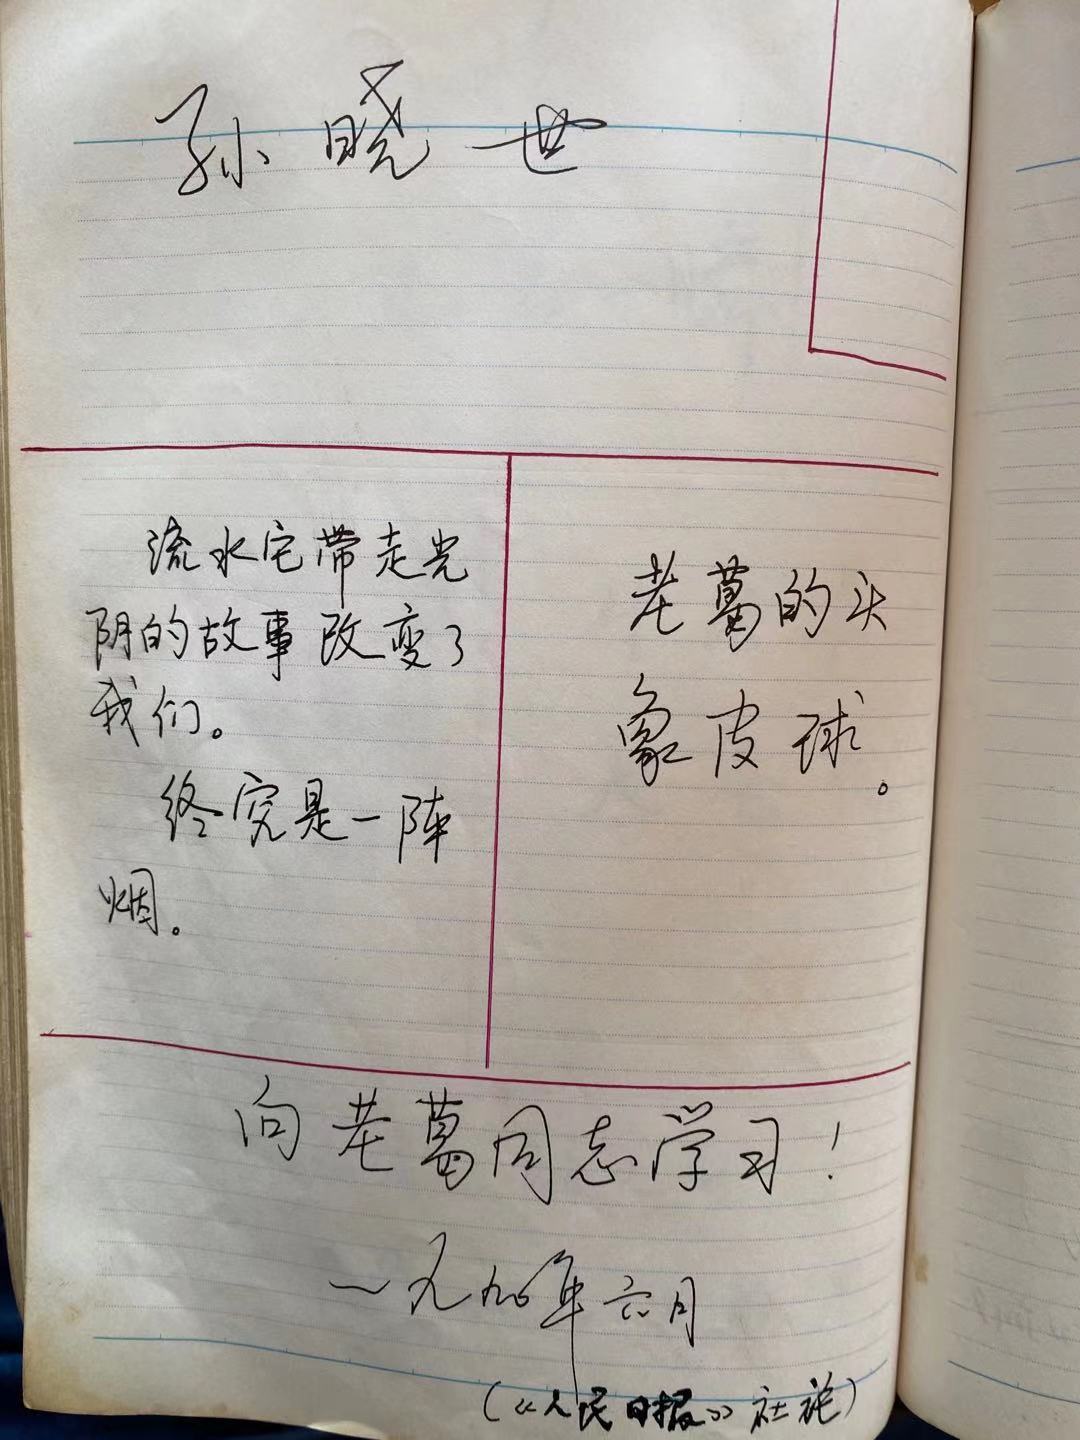 孙晓世
流水它带走光
阴的故事改变了
我们。
终究是一阵
烟。
老葛的头
象皮球。
向老葛同志学习！
一九九〇年六月
（《人民日报》社论）